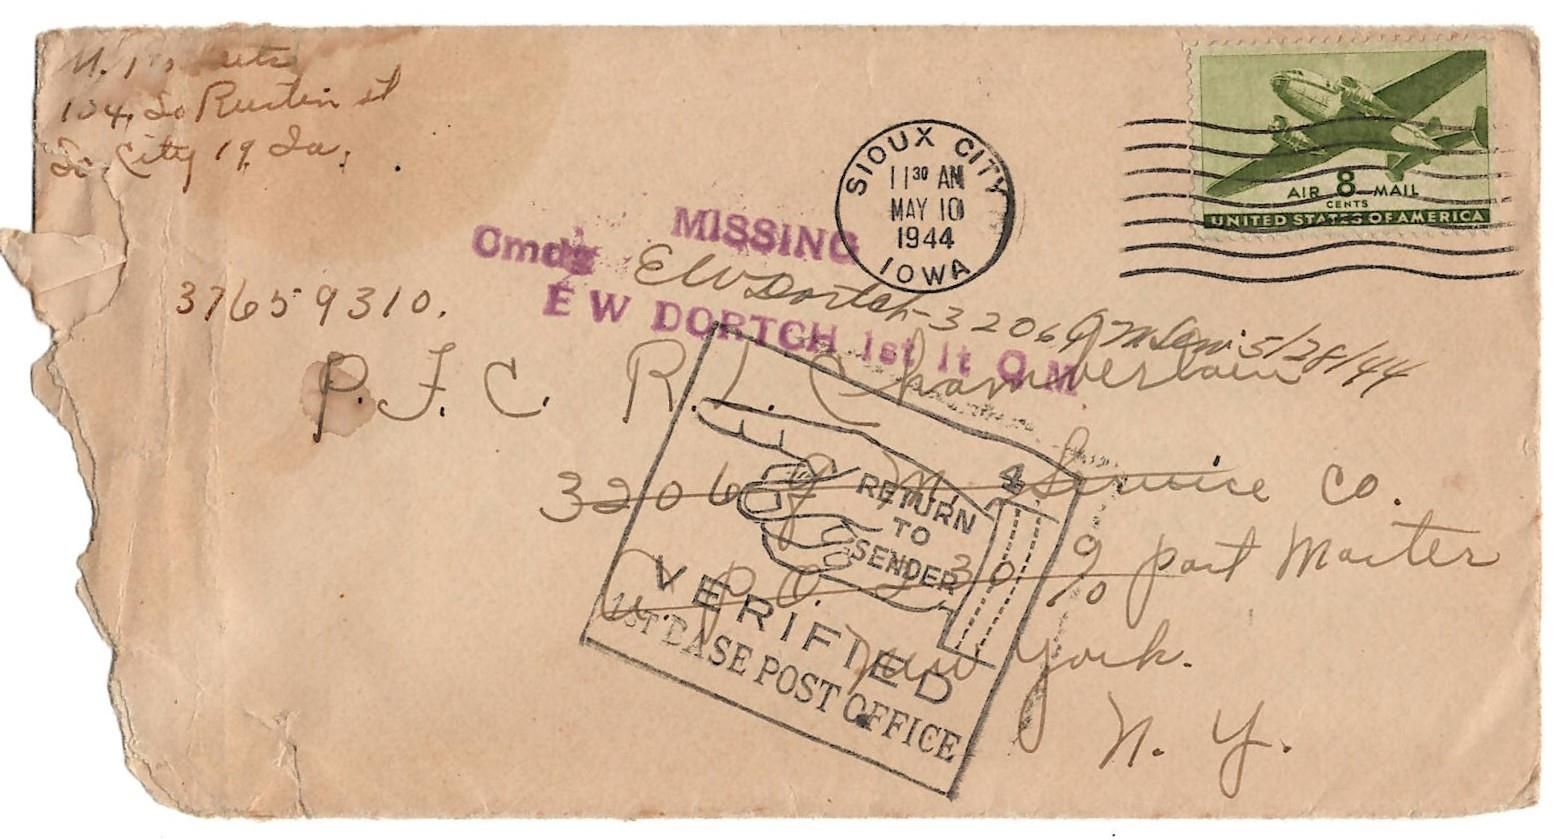 104, So Rustin st
So City 19, Ia.
SIOUX CITY
11 30 AM
MAY 10
1944
IOWA
AIR 8 MAIL
CENTS
UNITED STATES OF AMERICA
MISSING
Cmdg EW Dortch 3206 QM Serv 5/28/44
E W DORTCH 1st lt Q M
37659310.
P.F.C. R.L. Chamberlain
3206 Q M. Service Co.
A.P.O. 230 % Post Master
New York.
N. Y.
4
RETURN
TO
SENDER
VERIFIED
1ST BASE POST OFFICE